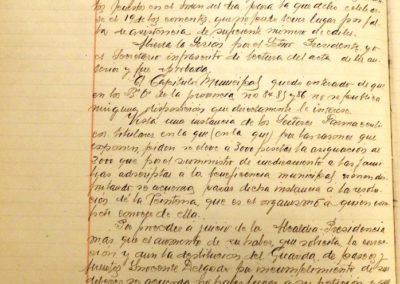 los puestos en el orden del día para la que debió celebrar-
se el 19 de los corrientes, que no pudo tener lugar por fal-
ta de asistencia de suficiente número de ediles.
Abierta la Sesión por el Señor Presidente, yo
el Secretario infrascrito di lectura del acta de la an-
terior y fue aprobada.
El Capítulo Municipal quedó enterado de que
en los B. O. de la provincia no 84, 85 y 86 no se publica
ninguna disposición que directamente le interese.
Vista una instancia de los Señores Farmaceuti-
cos titulares en la que (en la que) por las razones que
exponen, piden se eleve a 3000 pesetas la asignación de
2000 que por el suministro de medicamento a las fami-
lias adscriptas a la beneficencia municipal vienen dis-
frutando se acuerda pasar dicha instancia a la resolu-
ción de la Territona, que es el organismo a quien com-
pete conocer de ella.
Se procede a juicio de la Alcaldía-Presidencia
mas que el aumento de su haber que solicita la conce-
sion y aun la destitución del Guarda de paseos y
fuentes Inocente Delgado por incumplimiento de sus
deberes se acuerda no haber lugar a su petición y